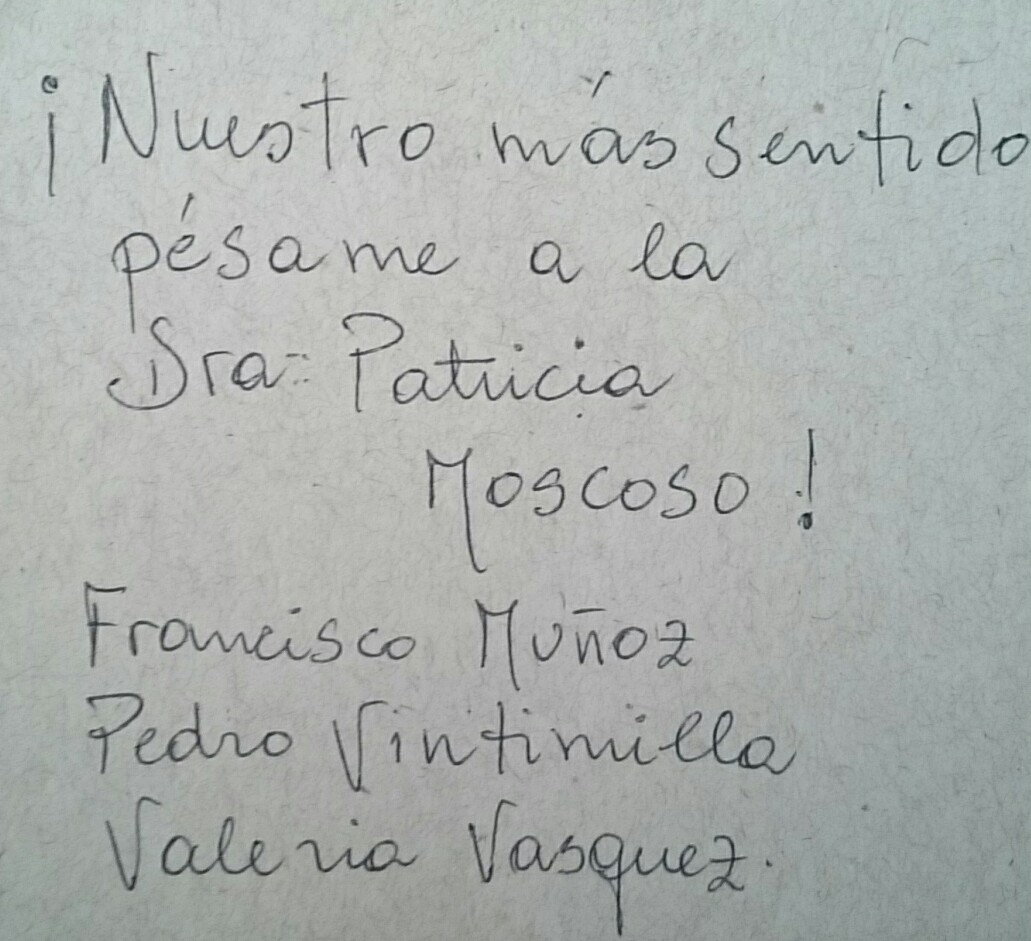 ¡Nuestro más sentido
pésame a la
Dra. Patricia
Moscoso!
Francisco Muñoz
Pedro Vintimilla
Valeria Vasquez.